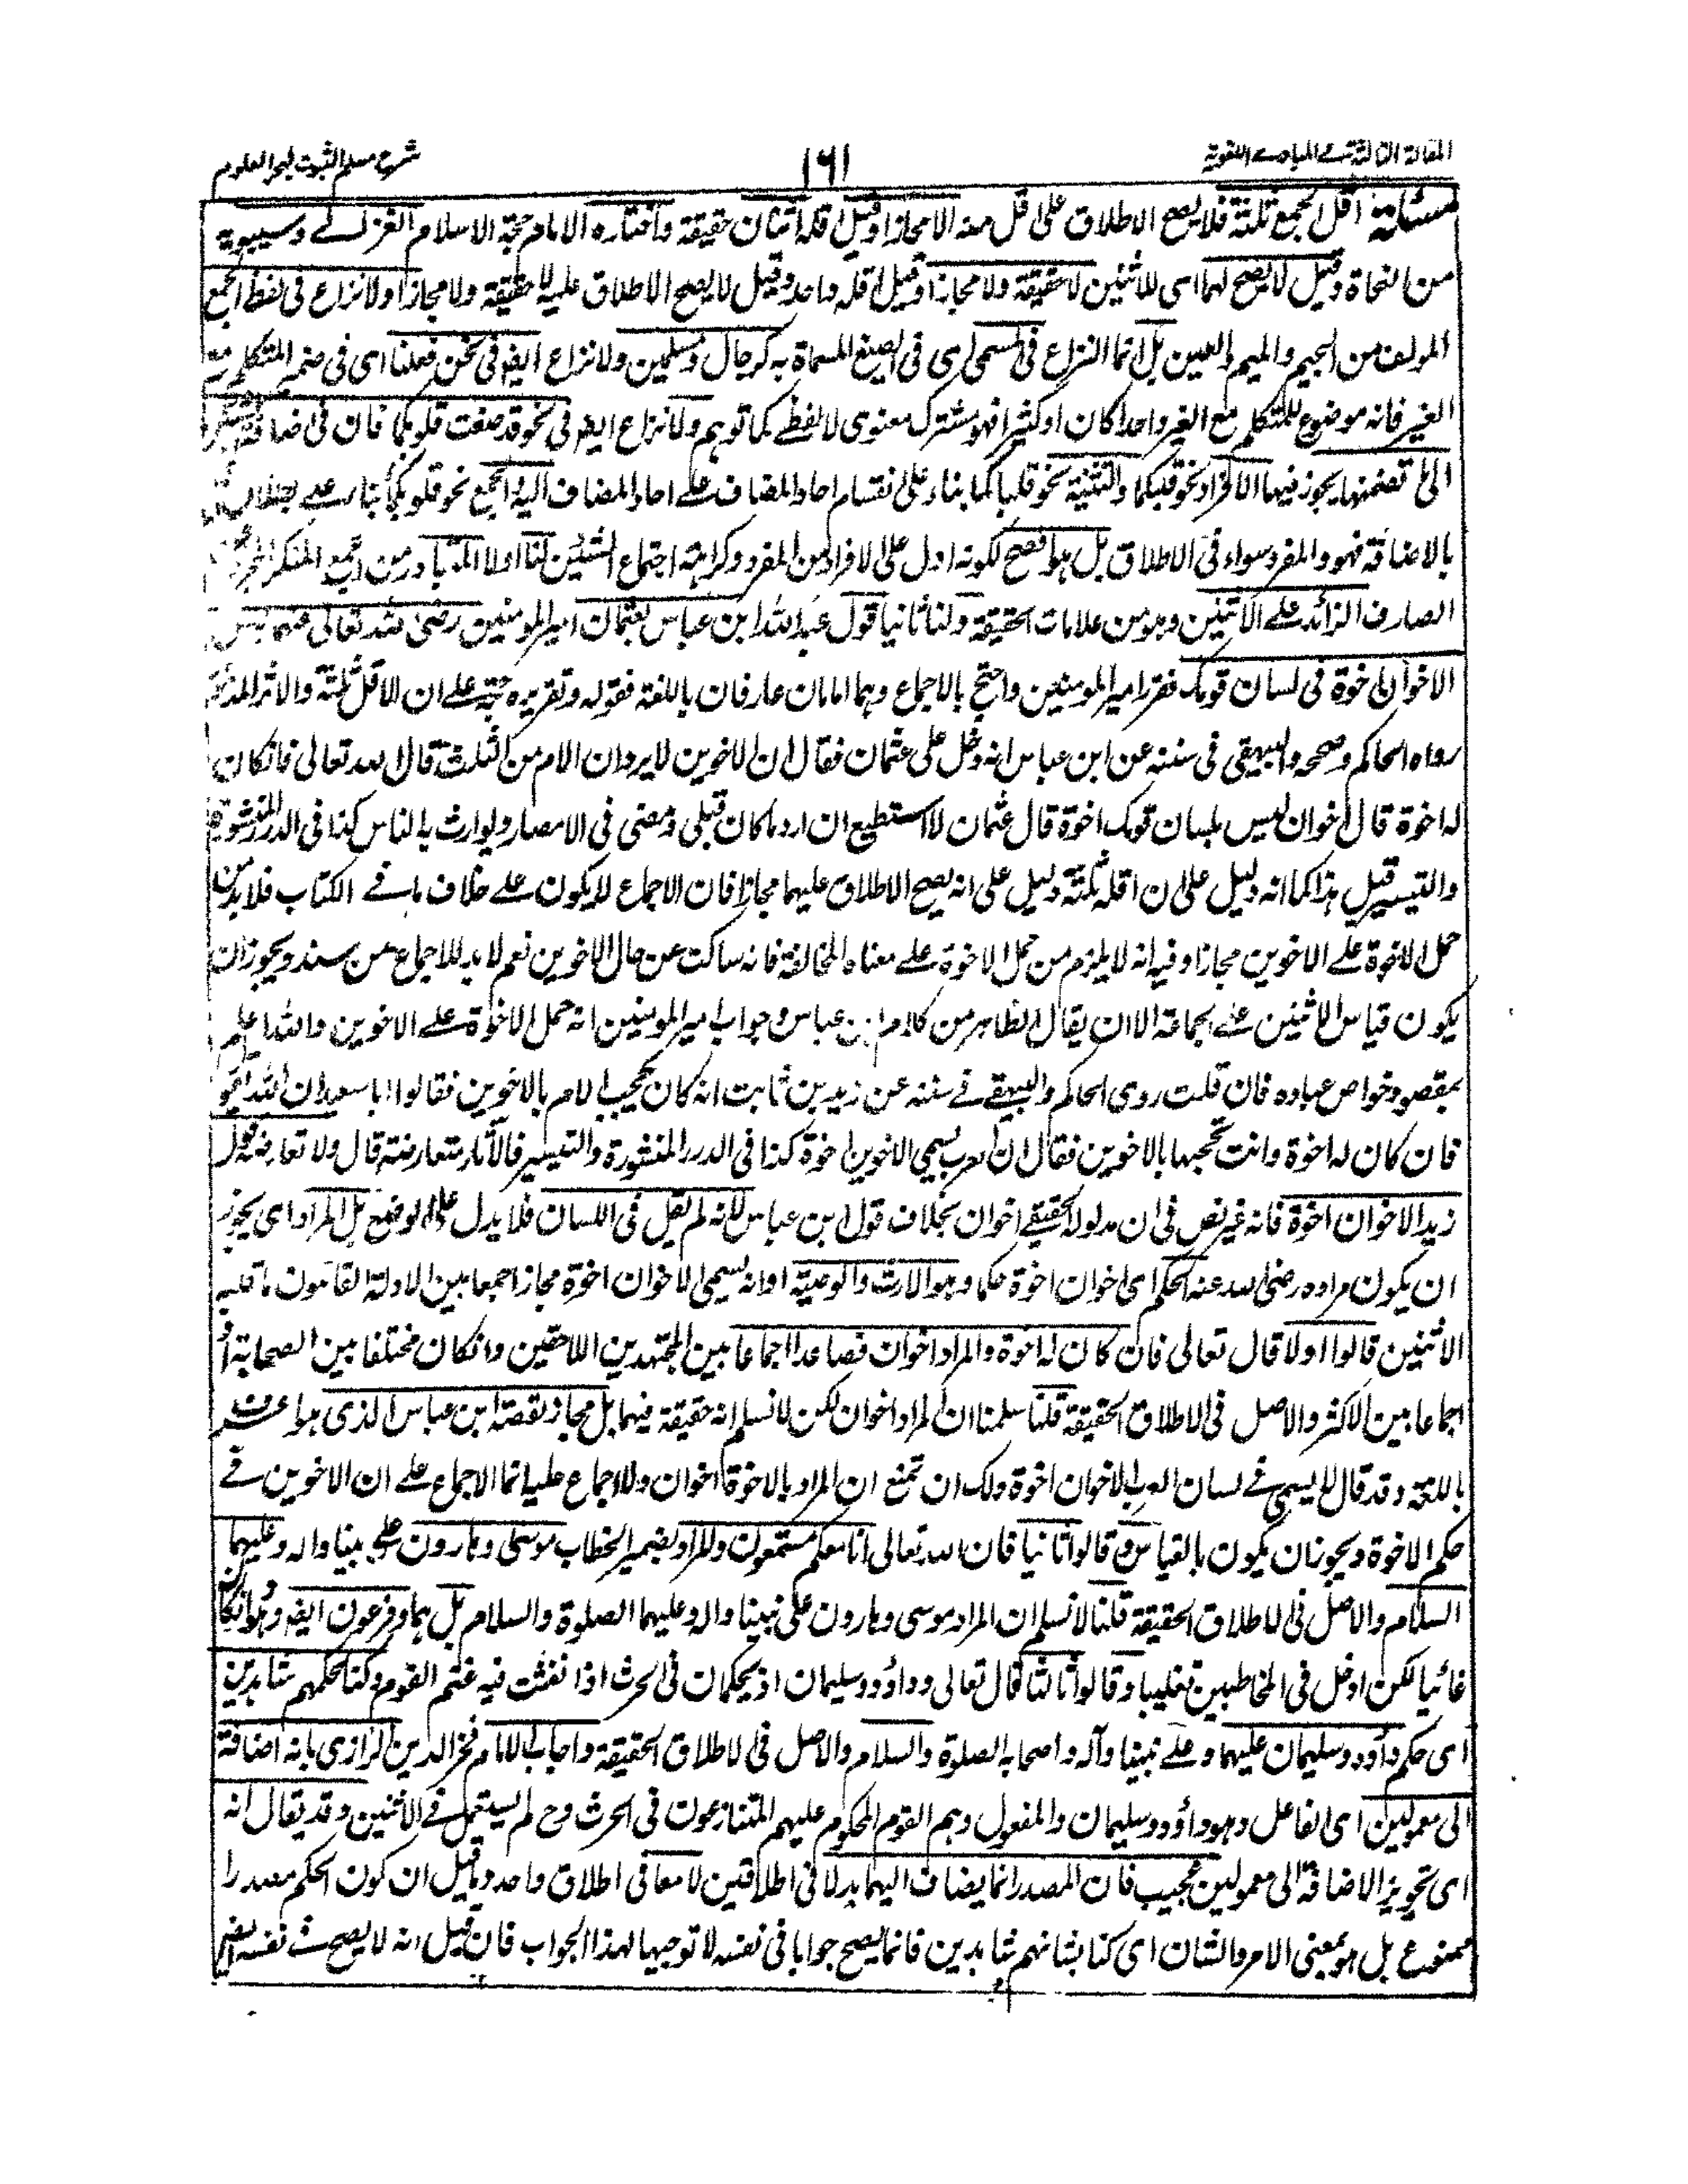 المقالة الثالثة في المبادي اللغوية
١٦١
شرح مسلم الثبوت لبحر العلوم
مسئلة اقل الجمع ثلثة فلا يصح الاطلاق على اقل منه الا مجازا وقيل اقله اثنان حقيقة واختاره الامام حجة الاسلام الغزالي وسيبويه
من النحاة وقيل لا يصح لهما اى للاثنين لا حقيقة ولا مجازا وقيل اقله واحد وقيل لا يصح الاطلاق عليه لا حقيقة ولا مجازا ولا نزاع فى لفظ الجمع
المولف من الجيم والميم والعين بل انما النزاع فى المسمى اى فى الصيغ المسماة به كرجال ومسلمين ولا نزاع ايضا فى نحن فعلنا اى فى ضمير المتكلم مع
الغير فانه موضوع للمتكلم مع الغير واحدا كان او كثيرا فهو مشترك معنوى لا لفظي كما توهم ولا نزاع ايضا فى نحو قد صغت قلوبكما فان فى اضافة
الى تضمنها يجوز فيها الافراد نحو قلبكما والتثنية نحو قلباكما بناء على انقسام احاد المضاف على احاد المضاف اليه والجمع نحو قلوبكما بناء على بطلان
بالاضافة فهو والمفرد سواء فى الاطلاق بل هو افصح لكونه ادل على الافراد من المفرد وكراهة اجتماع التثنيتين لنا اولا المتبادر من الجمع المنكر المجرد عن
الصارف الزائد على الاثنين وهو من علامات الحقيقة ولنا ثانيا قول عبد الله ابن عباس لعثمان امير المومنين رضى الله تعالى عنهما ليس
الاخوان اخوة فى لسان قومك فقرر امير المومنين واحتج بالاجماع وهما امامان عارفان باللغة فقوله وتقريره حجة على ان الاقل ثلثة والاثر المذكور
رواه الحاكم وصححه والبيهقى فى سننه عن ابن عباس انه دخل على عثمان فقال ان الاخوين لا يردان الام من الثلث قال الله تعالى فان كان
له اخوة قال اخوان ليس بلسان قومك اخوة قال عثمان لا استطيع ان ارد ما كان قبلى ومضى فى الامصار وتوارث به الناس كذا فى الدرر المنثورة
والتيسير قيل هذا كما انه دليل على ان اقله ثلثة دليل على انه يصح الاطلاق عليهما مجازا فان الاجماع لا يكون على خلاف ما في الكتاب فلا بد من
حمل الاخوة على الاخوين مجازا وفيه انه لا يلزم من حمل الاخوة على معناه المخالفة فانه ساكت عن حال الاخوين نعم لا بد للاجماع من سند ويجوز ان
يكون قياس الاثنين على الجماعة الا ان يقال الظاهر من كلام ابن عباس وجواب امير المومنين انه حمل الاخوة على الاخوين والله اعلم
بمقصود خواص عباده فان قلت روى الحاكم والبيهقي في سننه عن زيد بن ثابت انه كان يحجب الام بالاخوين فقالوا ابا سعيد ان الله يقول
فان كان له اخوة وانت تحجبها بالاخوين فقال ان العرب يسمى الاخوين اخوة كذا فى الدرر المنثورة والتيسير فالآثار متعارضة قال ولا تعارضه قول
زيد الاخوان اخوة فانه غير نص فى ان مدلوله الحقيقي اخوان بخلاف قول ابن عباس لانه لم يقل فى اللسان فلا يدل على الوضع بل المراد اى يجوز
ان يكون مراده رضى الله عنه الحكم اى اخوان اخوة حكما وهو الارث والوصية او انه يسمى الاخوان اخوة مجازا جمعا بين الادلة القائلون باقليه
الاثنين قالوا اولا قال تعالى فان كان له اخوة والمراد اخوان فصاعدا اجماعا بين المجتهدين اللاحقين وان كان مختلفا بين الصحابة او
اجماعا بين الاكثر والاصل فى الاطلاق الحقيقة قلنا سلمنا ان المراد اخوان لكن لا نسلم انه حقيقة فيهما بل مجاز لقصة ابن عباس الذى هو اعرف
باللغة وقد قال لا يسمى في لسان العرب الاخوان اخوة ولك ان تمنع ان المراد بالاخوة اخوان ولا اجماع عليه انما الاجماع على ان الاخوين في
حكم الاخوة ويجوز ان يكون بالقياس وقالوا ثانيا فان الله تعالى انا معكم مستمعون والمراد بضمير الخطاب موسى وهارون على نبينا واله وعليهما
السلام والاصل فى الاطلاق الحقيقة قلنا لا نسلم ان المراد موسى وهارون على نبينا واله وعليهما الصلوة والسلام بل هما وفرعون ايضا وهو وان كان
غائبا لكن ادخل فى المخاطبين تغليبا وقالوا ثالثا قال تعالى وداؤد وسليمان اذ يحكمان فى الحرث اذ نفشت فيه غنم القوم وكنا لحكمهم شاهدين
اى حكم داؤد وسليمان عليهما وعلى نبينا وآله واصحابه الصلوة والسلام والاصل فى الاطلاق الحقيقة واجاب الامام فخر الدين الرازى بانه اضافة
الى معمولين اى الفاعل وهو داؤد وسليمان والمفعول وهم القوم المحكوم عليهم المتنازعون فى الحرث وح لم يستعمل في الاثنين وقد يقال انه
اى تجويز الاضافة الى معمولين عجيب فان المصدر انما يضاف اليهما بدلا فى اطلاقين لا معا فى اطلاق واحد وما قيل ان كون الحكم مصدرا
ممنوع بل هو بمعنى الامر والشان اى كنا بشانهم شاهدين فانما يصح جوابا فى نفسه لا توجيها لهذا الجواب فان قيل انه لا يصح في نفسه ايضا